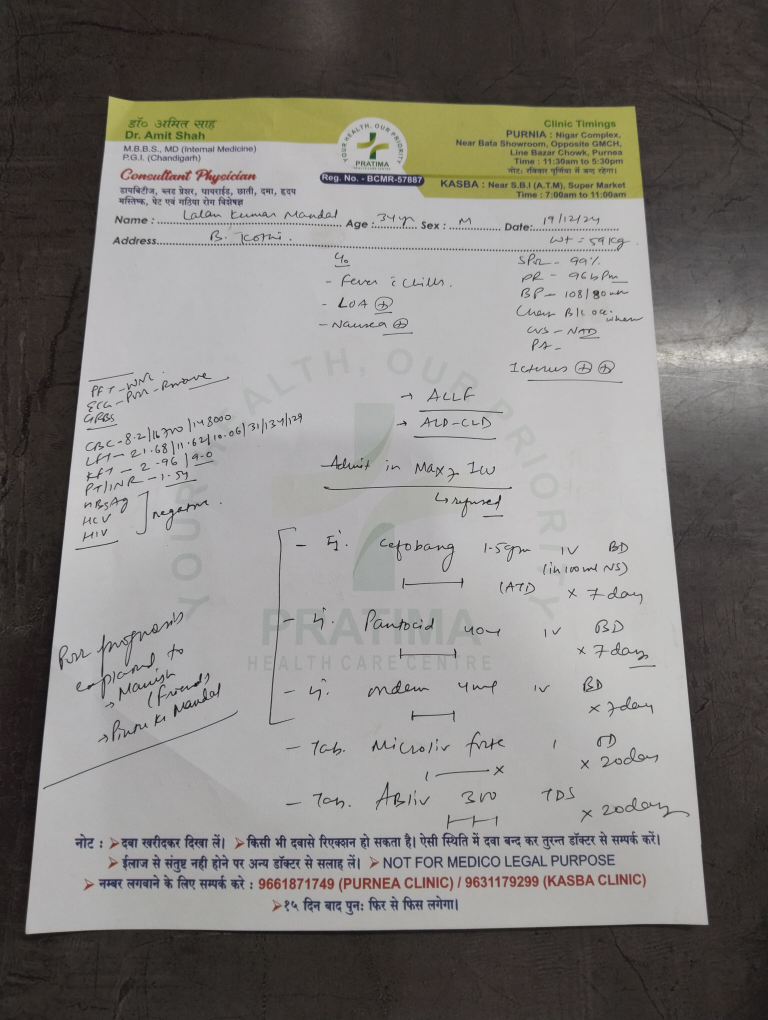 डॉ० अमित साह
Dr. Amit Shah
M.B.B.S., MD (Internal Medicine)
P.G.I. (Chandigarh)
Consultant Physician
डायबिटीज, ब्लड प्रेशर, थायराईड, छाती, दमा, हृदय
मस्तिष्क, पेट एवं गठिया रोग विशेषज्ञ
YOUR HEALTH, OUR PRIORITY
PRATIMA
HEALTH CARE CENTRE
Reg. No. - BCMR-57887
Clinic Timings
PURNIA : Nigar Complex,
Near Bata Showroom, Opposite GMCH,
Line Bazar Chowk, Purnea
Time : 11:30am to 5:30pm
नोट: रविवार पूर्णिया में बन्द रहेगा।
KASBA : Near S.B.I (A.T.M), Super Market
Time : 7:00am to 11:00am
Name : Lalan Kumar Mandal Age : 34 yr Sex : M Date: 19/12/24
Address B. Kothi. Wt = 59 kg
SPO2 - 99%
PR - 96 bpm
BP - 108/80
CVS - NAD
PA -
Icterus ⊕ ⊕
- Fever c̄ chills.
- LOA ⊕
- Nausea ⊕
GRBS
CBC - 8.2/16700/148000
LFT - 21.68/11.62/10.06/31/134/129
KFT - 2.96/9.0
PT/INR - 1.54
HBsAg
HCV
HIV
negative.
→ ALLF
→ ALD-CLD
Admit in
↳ refused
- Ij. Cefobang 1.5gm IV BD
(in 100ml NS)
(ATD) × 7 day
- Ij. Pantocid 40 IV BD
× 7 days
- Ij. ondem 4 IV BD
× 7 day
- Tab. Microliv forte 1 OD
× 20 day
- Tab. Abliv 300 TDS
× 20 days
Poor prognosis
explained to
→ Manish
(friend)
Mandal
YOUR HEALTH, OUR PRIORITY
PRATIMA
HEALTH CARE CENTRE
नोट : ➤दवा खरीदकर दिखा लें। ➤किसी भी दवासे रिएक्शन हो सकता है। ऐसी स्थिति में दवा बन्द कर तुरन्त डॉक्टर से सम्पर्क करें।
➤ईलाज से संतुष्ट नही होने पर अन्य डॉक्टर से सलाह लें। ➤NOT FOR MEDICO LEGAL PURPOSE
➤नम्बर लगवाने के लिए सम्पर्क करे : 9661871749 (PURNEA CLINIC) / 9631179299 (KASBA CLINIC)
➤१५ दिन बाद पुनः फिर से फिस लगेगा।